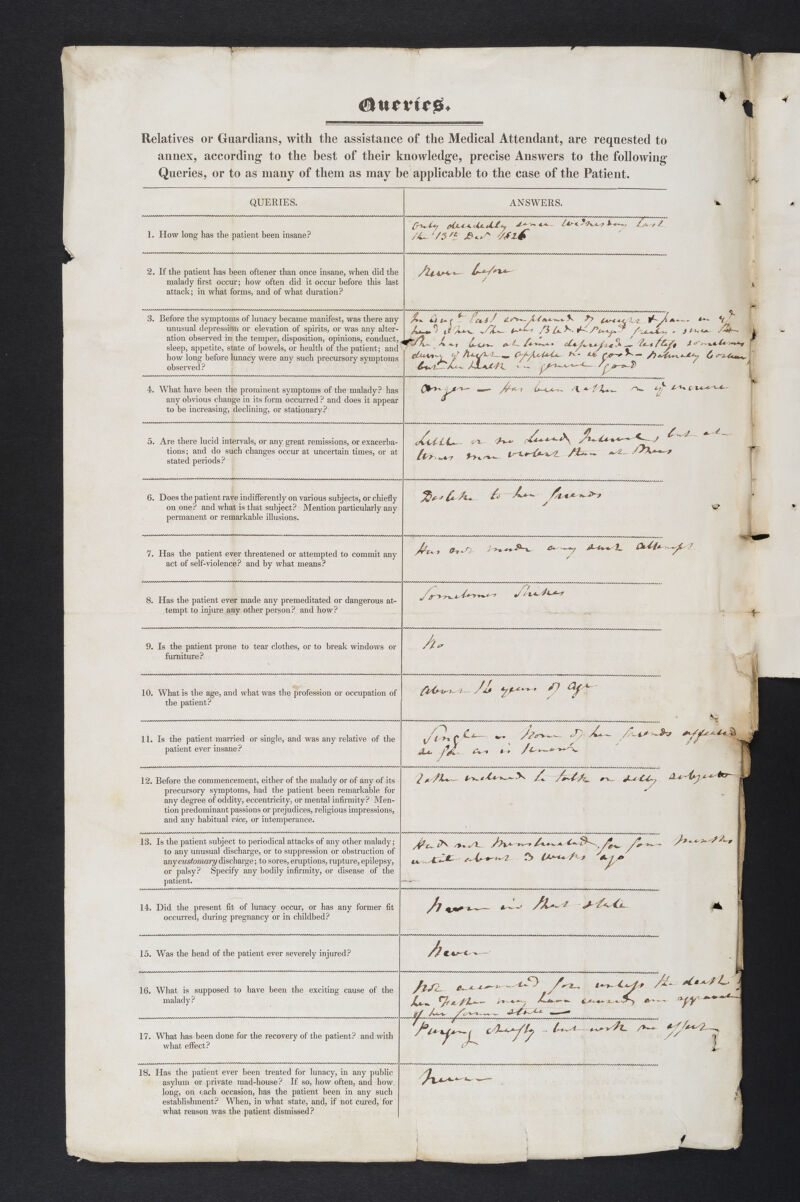 Queries.
Relatives or Guardians, with the assistance of the Medical Attendant, are requested to
annex, according to the best of their knowledge, precise Answers to the following
Queries, or to as many of them as may be applicable to the case of the Patient.
QUERIES.
ANSWERS.
1. How long has the patient been insane?
Only decidedly since Wednesday last
the 13th Decr 1826
2. If the patient has been oftener than once insane, when did the
malady first occur; how often did it occur before this last
attack; in what forms, and of what duration?
Never before
3. Before the symptoms of lunacy became manifest, was there any
unusual depression or elevation of spirits, or was any alter-
ation observed in the temper, disposition, opinions, conduct,
sleep, appetite, state of bowels, or health of the patient; and
how long before lunacy were any such precursory symptoms
observed?
In Augt last complained of weight & pain in ye
head when she was Bled & Purgd freely - since then
She has been at times depressed - restless sometimes
during ye Night - appetite good - Naturally Costive,
but her health in general good
4. What have been the prominent symptoms of the malady? has
any obvious change in its form occurred? and does it appear
to be increasing, declining, or stationary?
Anger — Has been rather on ye increase
5. Are there lucid intervals, or any great remissions, or exacerba-
tions; and do such changes occur at uncertain times, or at
stated periods?
Little or no Lucid Interval, but at
times more violent than at others
6. Does the patient rave indifferently on various subjects, or chiefly
on one? and what is that subject? Mention particularly any
permanent or remarkable illusions.
Dislike to her friends
7. Has the patient ever threatened or attempted to commit any
act of self-violence? and by what means?
Has not made any such attempt
8. Has the patient ever made any premeditated or dangerous at-
tempt to injure any other person? and how?
Sometimes Strikes
9. Is the patient prone to tear clothes, or to break windows or
furniture?
No
10. What is the age, and what was the profession or occupation of
the patient?
About 16 years of age
11. Is the patient married or single, and was any relative of the
patient ever insane?
Single - None of her friends affected
as far as is known
12. Before the commencement, either of the malady or of any of its
precursory symptoms, had the patient been remarkable for
any degree of oddity, eccentricity, or mental infirmity? Men-
tion predominant passions or prejudices, religious impressions,
and any habitual vice, or intemperance.
Rather inclined to talk on silly subjects
13. Is the patient subject to periodical attacks of any other malady;
to any unusual discharge, or to suppression or obstruction of
any customary discharge; to sores, eruptions, rupture, epilepsy,
or palsy? Specify any bodily infirmity, or disease of the
patient.
Had not Menstruated for four Months
until about 3 weeks ago
14. Did the present fit of lunacy occur, or has any former fit
occurred, during pregnancy or in childbed?
Never in that state
15. Was the head of the patient ever severely injured?
Never
16. What is supposed to have been the exciting cause of the
malady?
Not accounted for unless the death of
her Father may have caused
of her former state —
17. What has been done for the recovery of the patient? and with
what effect?
Purging chiefly - but with no effect
18. Has the patient ever been treated for lunacy, in any public
asylum or private mad-house? If so, how often, and how
long, on each occasion, has the patient been in any such
establishment? When, in what state, and, if not cured, for
what reason was the patient dismissed?
Never